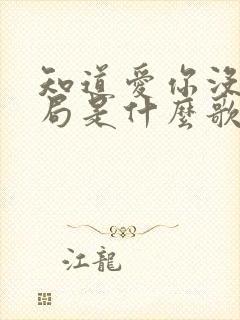 知道愛你沒
局是什麼歌
江龍